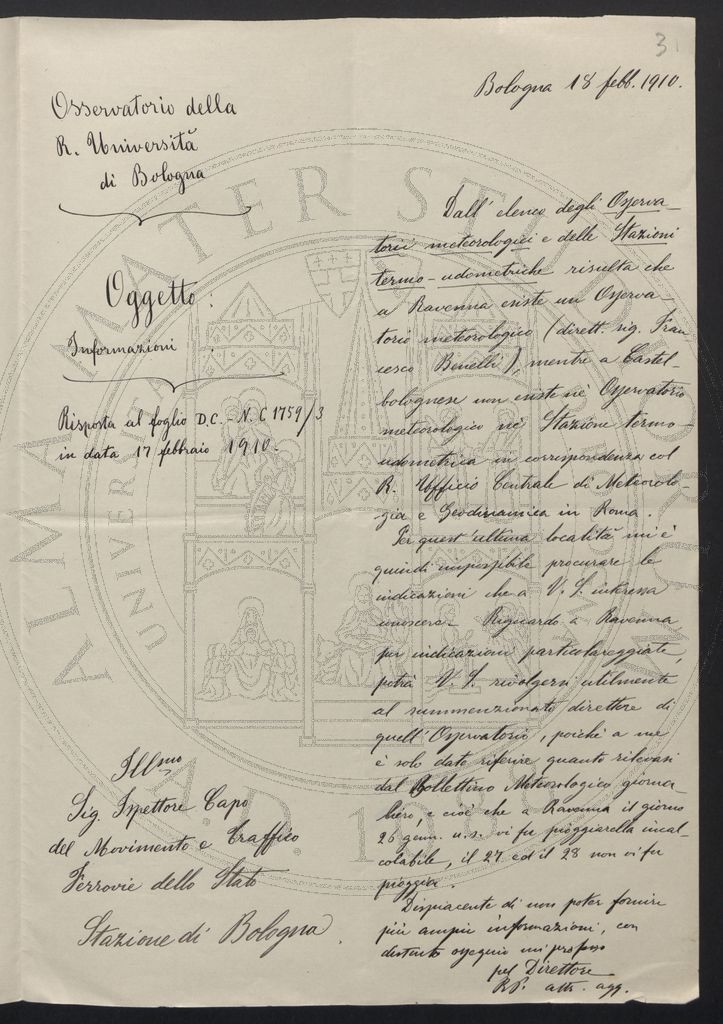 31
Bologna 18 febb. 1910.
Osservatorio della
R. Università
di Bologna
Oggetto:
Informazioni
Risposta al foglio D.C. - N. C 1759/3
in data 17 febbraio 1910.
Dall' elenco degli Osserva-
torii meteorologici e delle Stazioni
termo-udometriche risulta che
a Ravenna esiste un Osserva-
torio meteorologico (dirett. sig. Fran
cesco Benelli), mentre a Castel-
bolognese non esiste nè Osservatorio
meteorologico nè Stazione termo-
udometrica in corrispondenza col
R. Ufficio Centrale di Meteorolo-
gia e Geodinamica in Roma.
Per quest'ultima località mi è
quindi impossibile procurare le
indicazioni che a V. S. interessa
conoscere. Riguardo a Ravenna,
per indicazioni particolareggiate,
potrà V. S. rivolgersi utilmente
al summenzionato direttore di
quell' Osservatorio, poichè a me
è solo dato riferire quanto rilevasi
dal Bollettino Meteorologico giorna-
liero, e cioè che a Ravenna il giorno
26 genn. u. s. vi fu pioggiarella incal-
colabile, il 27 ed il 28 non vi fu
pioggia.
Dispiacente di non poter fornire
più ampie informazioni, con
distinto ossequio mi professo
pel Direttore
att. agg.
Ill.mo
Sig. Ispettore Capo
del Movimento e Traffico
Ferrovie dello Stato
Stazione di Bologna.
ALMA MATER STUDIORUM
A.D. 1088